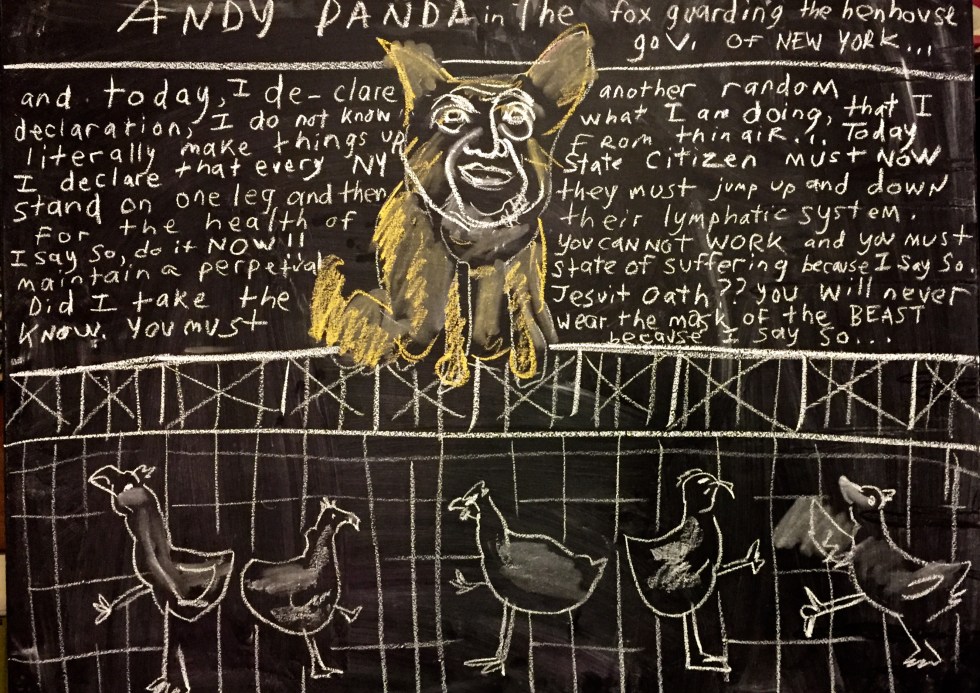 ANDY PANDA in The fox guarding the henhouse
gov. OF NEW YORK...
and today, I de-clare another random
declaration, I do not know what I am doing, that I
literally make things up FROM thin air... Today
I declare that every NY State Citizen must NOW
stand on one leg and then they must jump up and down
For the health of their lymphatic system.
I say so, do it NOW!! You CANNOT WORK and you must
maintain a perpetual state of suffering because I say so
Did I take the Jesuit Oath?? You will never
KNOW. You must wear the mask of the BEAST
because I say so...